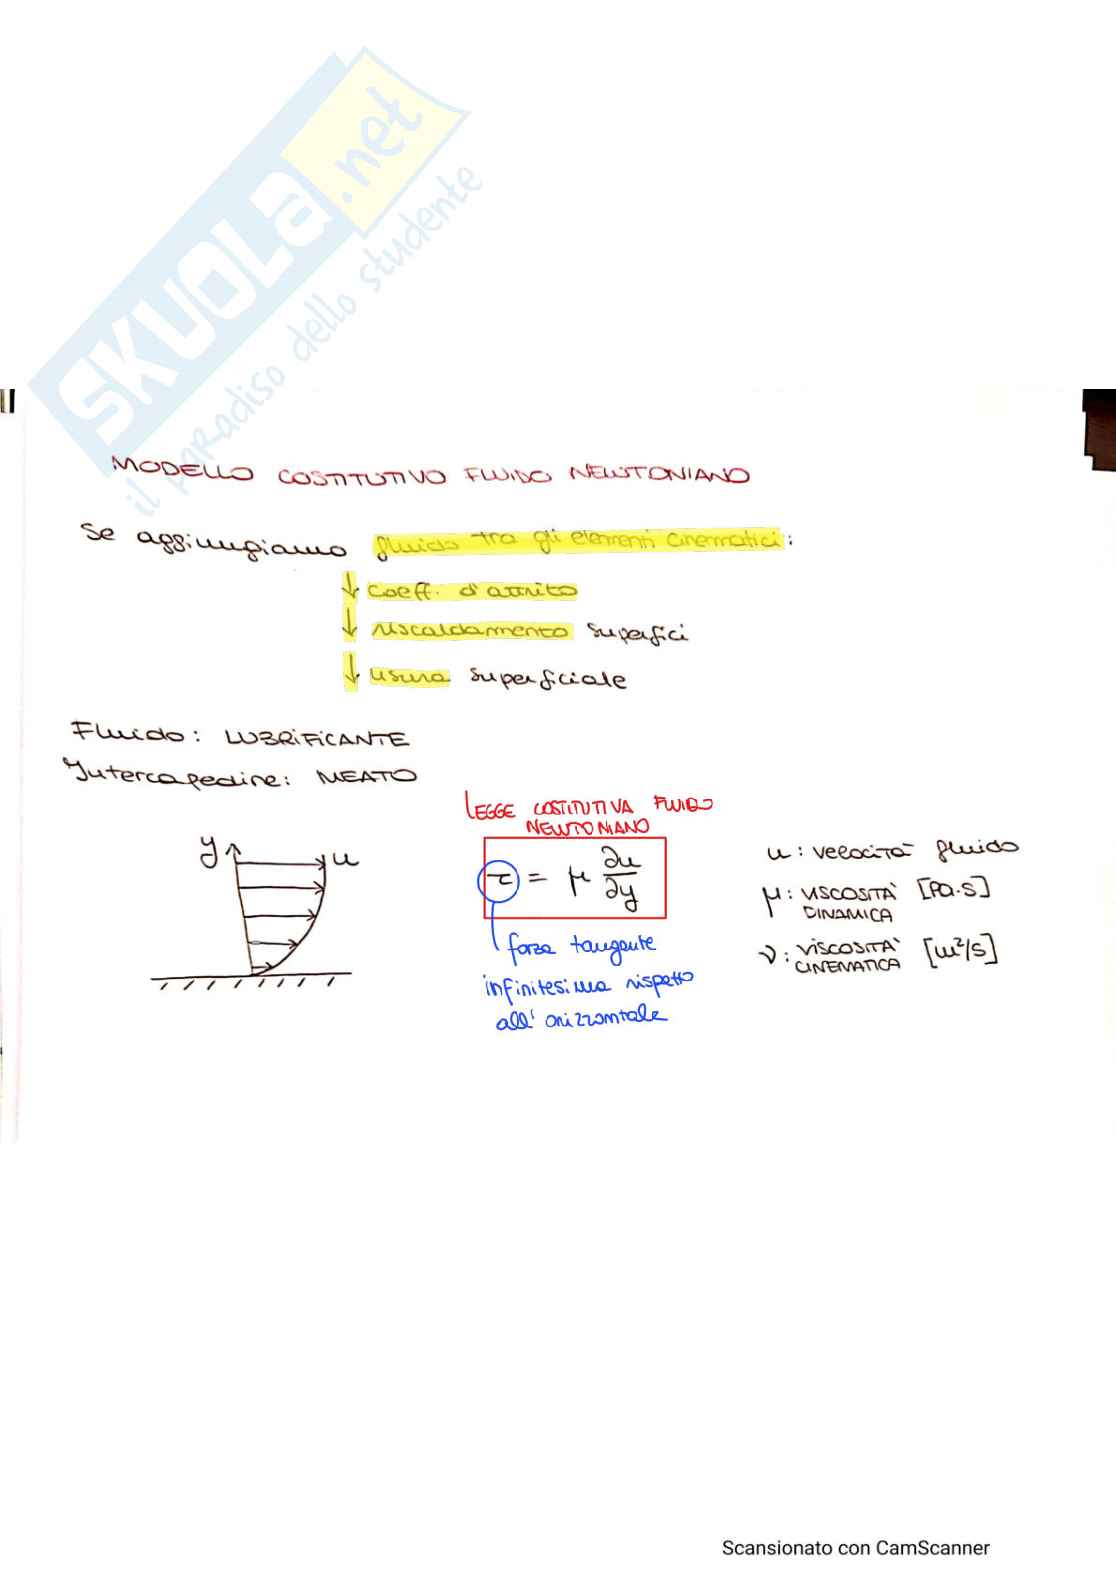 SKUOLA.net
il paradiso dello studente
MODELLO COSTITUTIVO FLUIDO NEWTONIANO
Se aggiungiamo fluido tra gli elementi cinematici:
↓ coeff. d'attrito
↓ riscaldamento superfici
↓ usura superficiale
Fluido: LUBRIFICANTE
Intercapedine: MEATO
LEGGE COSTITUTIVA FLUIDO
NEWTONIANO
y u
τ = μ ∂u/∂y
forza tangente
infinitesima rispetto
all' orizzontale
u: velocità fluido
μ: VISCOSITÀ [Pa·s]
DINAMICA
ν: VISCOSITÀ [m²/s]
CINEMATICA
Scansionato con CamScanner